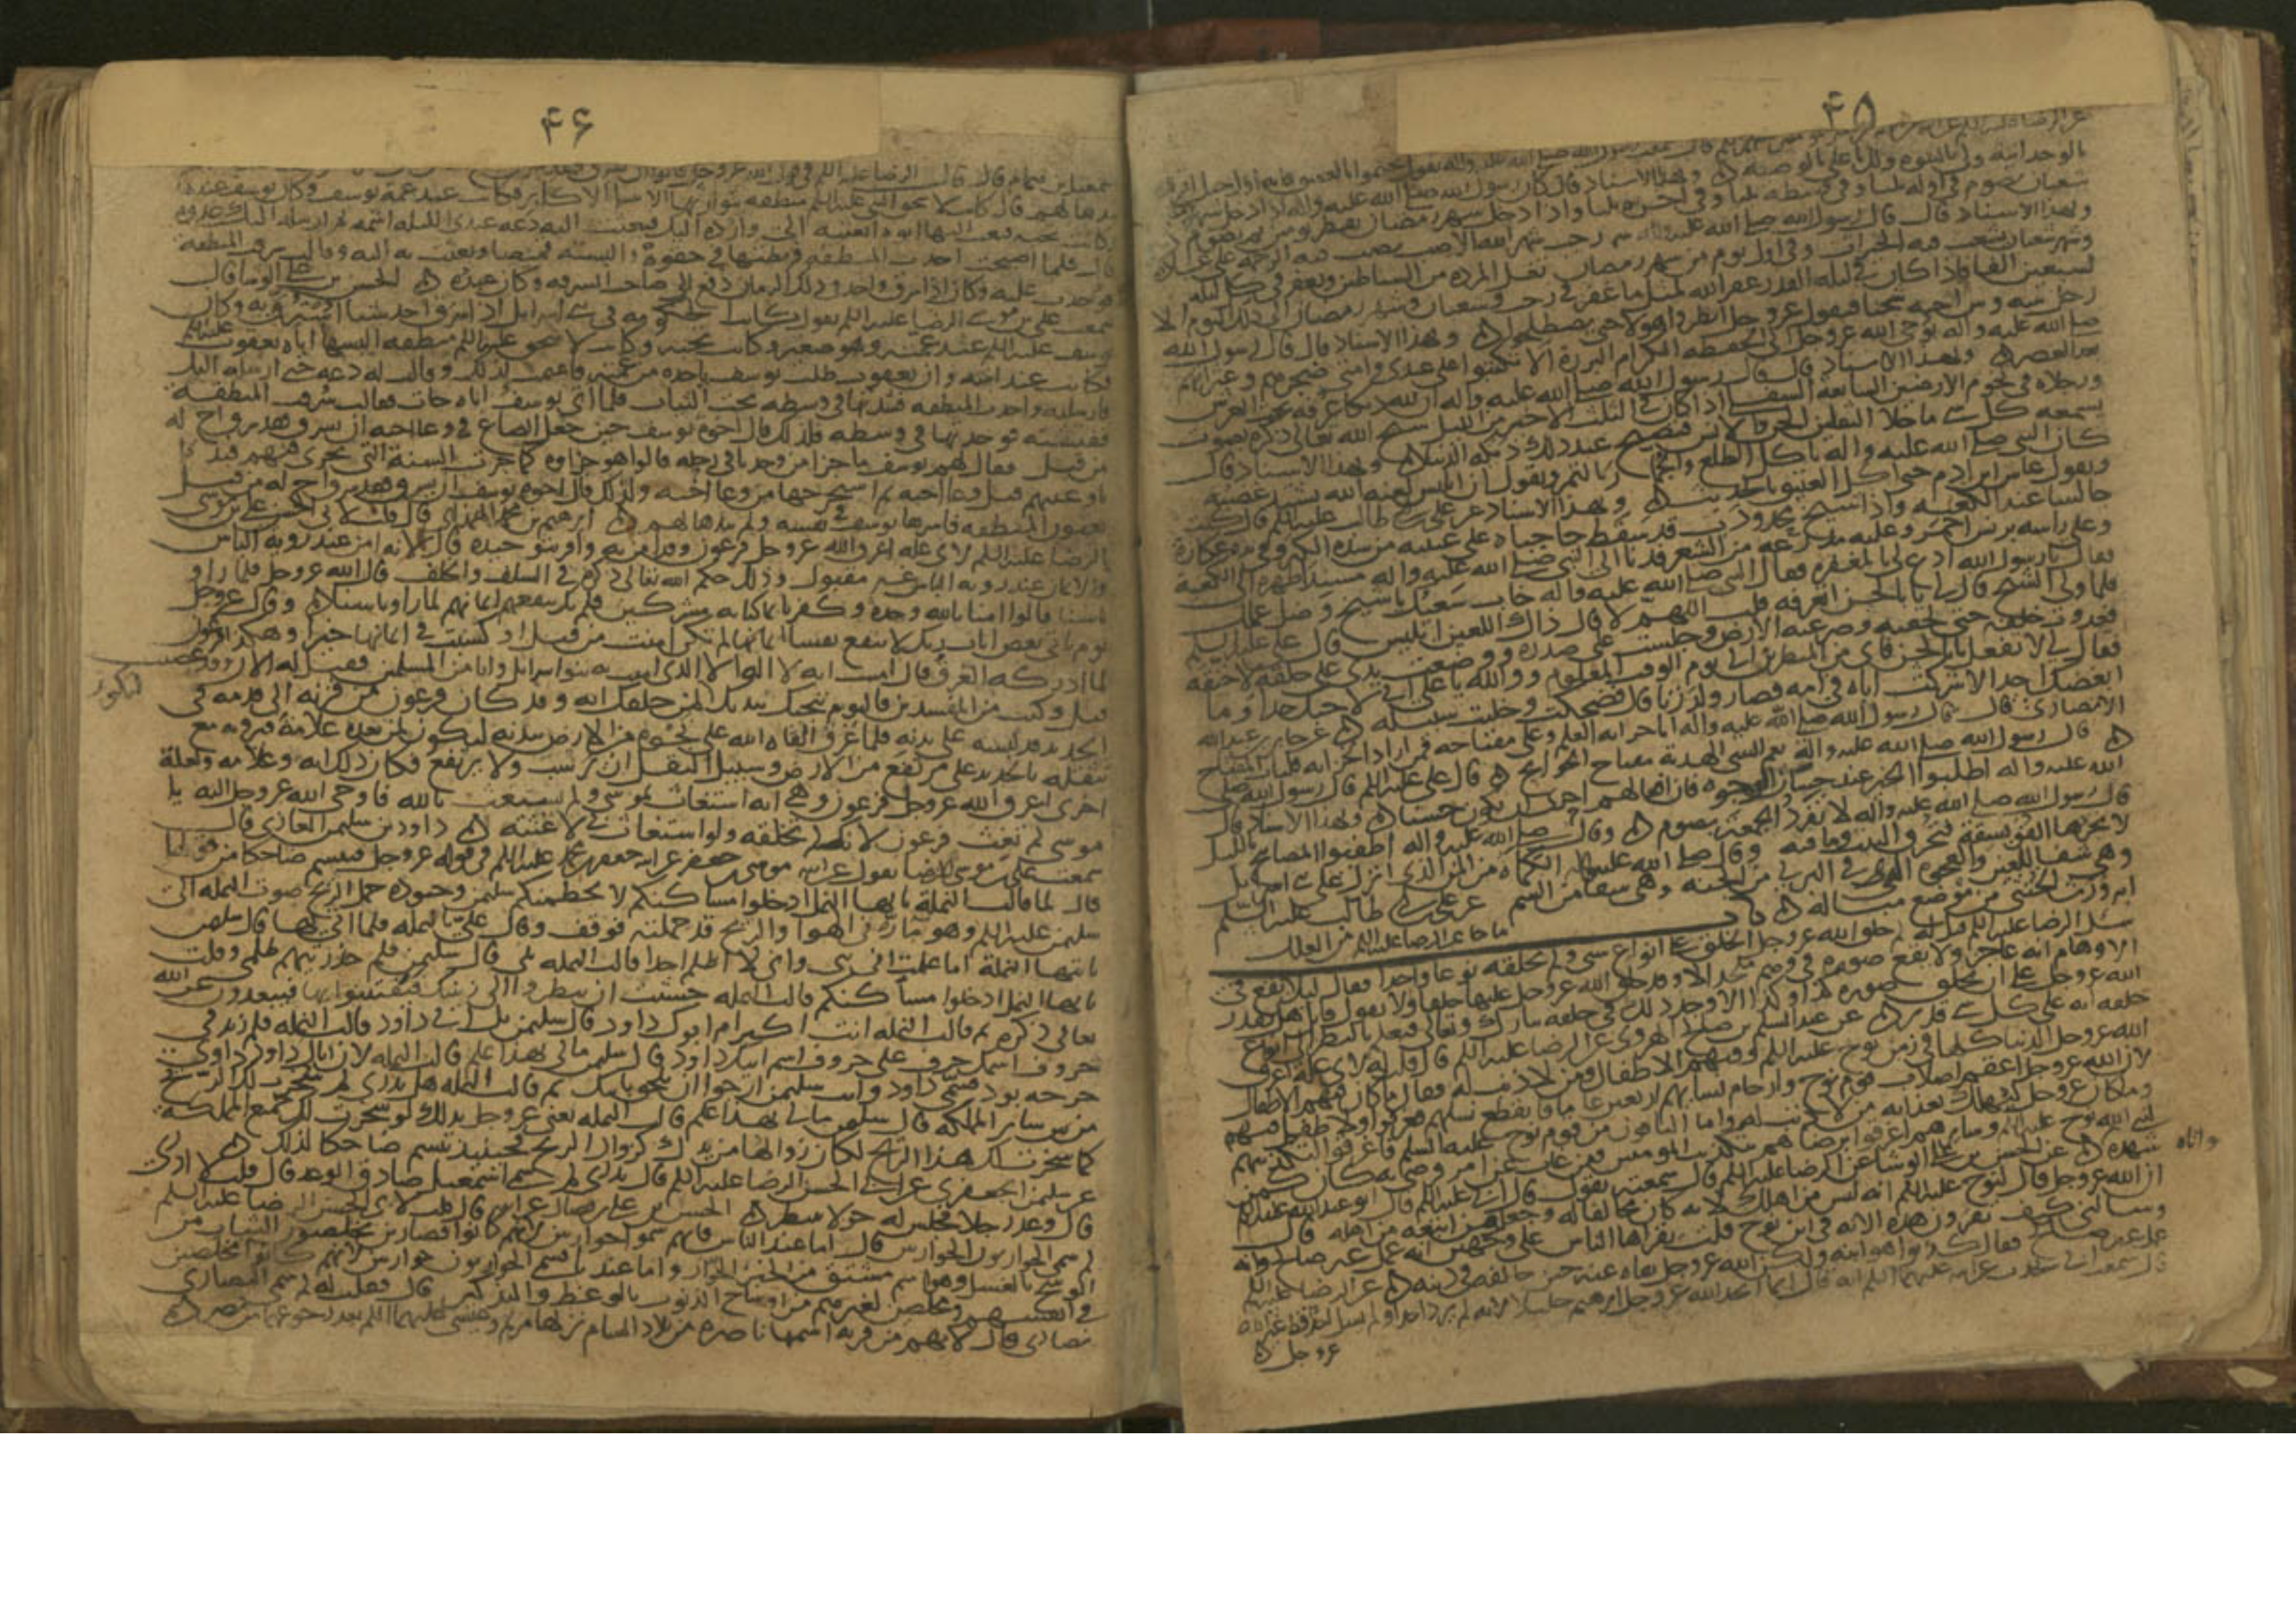 ۴۵
بالوحدانيه ولي بالنبوه ولك يا علي بالوصيه وبهذا الاسناد قال كان رسول الله صلى الله عليه واله اذا دخل شهر
ولهذا الاسناد قال قال رسول الله صلى الله عليه واله رجب شهر الله الاصب يصب فيه الرحمه على عباده
وشهر شعبان تشعب فيه الخيرات وفي اول يوم من شهر رمضان تغل المرده من الشياطين ويغفر في كل ليله
لسبعين الفا فاذا كان في ليله القدر غفر الله لمثل ما غفر في رجب وشعبان وشهر رمضان الى ذلك اليوم الا
رجل بينه وبين اخيه شحنا فيقول عز وجل انظروا هولا حتى يصطلحوا وبهذا الاسناد قال قال رسول الله
صلى الله عليه واله يوحي الله عز وجل الى الحفظه الكرام البرره الا تكتبوا على عبدي وامتي ضجرهم وعثراتهم
بعد العصر وبهذا الاسناد قال قال رسول الله صلى الله عليه واله ان لله ديكا عرفه تحت العرش
ورجلاه في تخوم الارضين السابعه السفلى اذا كان في الثلث الاخير من الليل سبح الله تعالى ذكره بصوت
يسمعه كل شي ما خلا الثقلين الجن والانس فتصيح عند ذلك ديكه الدنيا وبهذا الاسناد قال
كان النبي صلى الله عليه واله ياكل الطلع والجمار بالتمر ويقول ان ابليس لعنه الله يشتد غضبه
ويقول عاش ابن ادم حتى اكل العتيق بالحديث وبهذا الاسناد عن علي بن ابي طالب عليه السلم قال كنت
جالسا عند الكعبه واذا شيخ محدودب قد سقط حاجباه على عينيه من شده الكبر وفي يده عكازه
وعلى راسه برنس احمر وعليه مدرعه من الشعر فدنا الى النبي صلى الله عليه واله مسند ظهره الى الكعبه
فقال يا رسول الله ادع لي بالمغفره فقال النبي صلى الله عليه واله خاب سعيك يا شيخ وضل عملك
فلما ولى الشيخ قال لي يا ابا الحسن اتعرفه قلت اللهم لا قال ذاك اللعين ابليس قال علي عليه السلم
فعدوت خلفه حتى لحقته وصرعته الى الارض وجلست على صدره ووضعت يدي على حلقه لاخنقه
فقال لي لا تفعل يا ابا الحسن فاني من المنظرين الى يوم الوقت المعلوم ووالله يا علي اني لاحبك جدا وما
ابغضك احد الا شركت اباه في امه فصار ولد زنا فضحكت وخليت سبيله عن جابر بن عبد الله
الانصاري قال قال رسول الله صلى الله عليه واله انا خزانه العلم وعلي مفتاحه فمن اراد الخزانه فليات المفتاح
قال رسول الله صلى الله عليه واله نعم الشي الهديه مفتاح الحوايج قال علي عليه السلم قال رسول الله صلى
الله عليه واله اطلبوا الخير عند حسان الوجوه فان فعالهم احرى ان يكون حسنا وبهذا الاسناد قال
قال رسول الله صلى الله عليه واله لا تفرد الجمعه بصوم وقال صلى الله عليه واله اطفئوا المصابيح بالليل
لا تجرها الفويسقه فتحرق البيت وما فيه وقال صلى الله عليه واله الكماه من المن الذي انزل على بني اسرايل
وهي شفا للعين والعجوه التي في البرني من الجنه وهي شفا من السم عن علي بن ابي طالب عليه السلم
انه ورث الخنثى من موضع مباله باب ما جا عن الرضا عليه السلم من العلل
سئل الرضا عليه السلم قيل له لم خلق الله عز وجل الخلق على انواع شتى ولم يخلقه نوعا واحدا فقال ليلا يقع في
الاوهام انه عاجز ولا يقع صوره في وهم ملحد الا وقد خلق الله عز وجل عليها خلقا ولا يقول قايل هل يقدر
الله عز وجل على ان يخلق صوره كذا وكذا الا وجد ذلك في خلقه تبارك وتعالى فيعلم بالنظر الى انواع
خلقه انه على كل شي قدير عن عبد السلم بن صالح الهروي عن الرضا عليه السلم قال قلت له لاي عله اغرق
الله عز وجل الدنيا كلها في زمن نوح عليه السلم وفيهم الاطفال ومن لا ذنب له فقال ما كان فيهم الاطفال
لان الله عز وجل اعقم اصلاب قوم نوح وارحام نسايهم اربعين عاما فانقطع نسلهم فغرقوا ولا طفل فيهم
وما كان عز وجل ليهلك بعذابه من لا ذنب له واما الباقون من قوم نوح عليه السلم فاغرقوا لتكذيبهم
لنبي الله نوح عليه السلم وسايرهم اغرقوا برضاهم بتكذيب المكذبين ومن غاب عن امر ورضي به كان كمن
شهده عن الحسن بن علي الوشا عن الرضا عليه السلم قال سمعته يقول قال ابي عليه السلم قال ابو عبد الله عليه السلم
واتاه
ان الله عز وجل قال لنوح عليه السلم انه ليس من اهلك لانه كان مخالفا له وجعل من اتبعه من اهله قال
وسالني كيف تقرون هذه الايه في ابن نوح قلت يقراها الناس على وجهين انه عمل غير صالح وانه
عمل غير صالح فقال كذبوا هو ابنه ولكن الله عز وجل نفاه عنه حين خالفه في دينه عن الرضا عليه السلم
قال سمعت ابي يحدث عن ابيه عليهما السلم انه قال انما اتخذ الله عز وجل ابرهيم خليلا لانه لم يرد احدا ولم يسل احدا قط غير الله
عز وجل
۴۶
قال فلما اصبحت اخذت المنطقه فربطتها في حقوه والبسته قميصا وبعثت به اليه وقالت سرقت المنطقه
فوجدت عليه وكان اذا سرق واحد في ذلك الزمان دفع الى صاحب السرقه وكان عبده الحسن بن علي الوشا قال
سمعت علي بن موسى الرضا عليه السلم يقول كانت الحكومه في بني اسرايل اذا سرق احد شيا استرق به وكان
يوسف عليه السلم عند عمته وهو صغير وكانت تحبه وكانت لاسحق عليه السلم منطقه البسها اياه يعقوب عليه السلم
فكانت عند ابنته وان يعقوب طلب يوسف ياخذه من عمته فاغتمت لذلك وقالت له دعه حتى ارسله اليك
فارسلته واخذت المنطقه فشدتها في وسطه تحت الثياب فلما اتى يوسف اباه جات فقالت سرقت المنطقه
ففتشته فوجدتها في وسطه فلذلك قال اخوه يوسف حين جعل الصاع في وعا اخيه ان يسرق فقد سرق اخ له
من قبل فقال لهم يوسف ما جزا من وجدنا في رحله قالوا هو جزاوه كما جرت السنه التي تجري فيهم فبدا
باوعيتهم قبل وعا اخيه ثم استخرجها من وعا اخيه ولذلك قال اخوه يوسف ان يسرق فقد سرق اخ له من قبل
يعنون المنطقه فاسرها يوسف في نفسه ولم يبدها لهم ابرهيم بن محمد الهمداني قال قلت لابي الحسن علي بن موسى
الرضا عليه السلم لاي عله اغرق الله عز وجل فرعون وقد امن به واقر بتوحيده قال لانه امن عند رويه الباس
والايمان عند رويه الباس غير مقبول وذلك حكم الله تعالى ذكره في السلف والخلف قال الله عز وجل فلما راوا
باسنا قالوا امنا بالله وحده وكفرنا بما كنا به مشركين فلم يك ينفعهم ايمانهم لما راوا باسنا وقال عز وجل
يوم ياتي بعض ايات ربك لا ينفع نفسا ايمانها لم تكن امنت من قبل او كسبت في ايمانها خيرا وهكذا فرعون
لما ادركه الغرق قال امنت انه لا اله الا الذي امنت به بنوا اسرايل وانا من المسلمين فقيل له الان وقد عصيت
قبل وكنت من المفسدين فاليوم ننجيك ببدنك لتكون لمن خلفك ايه وقد كان فرعون من قرنه الى قدمه في
لتكون
الحديد قد لبسه على بدنه فلما غرق القاه الله على نجوه من الارض ببدنه ليكون لمن بعده علامه فيرونه مع
تثقله بالحديد على مرتفع من الارض وسبيل الثقيل ان يرسب ولا يرتفع فكان ذلك ايه وعلامه ولعله
اخرى اغرق الله عز وجل فرعون وهي انه استغاث بموسى ولم يستغث بالله فاوحى الله عز وجل اليه يا
موسى لم تغث فرعون لانك لم تخلقه ولو استغاث بي لاغثته داود بن سليمن الغازي قال
سمعت علي بن موسى الرضا يقول عن ابيه موسى بن جعفر عن ابيه جعفر بن محمد عليه السلم في قوله عز وجل فتبسم ضاحكا من قولها
قال لما قالت النمله يا ايها النمل ادخلوا مساكنكم لا يحطمنكم سليمن وجنوده حمل الريح صوت النمله الى
سليمن عليه السلم وهو مار في الهوا والريح قد حملته فوقف وقال علي بالنمله فلما اتي بها قال سليمن
يا ايتها النمله اما علمت اني نبي واني لا اظلم احدا قالت النمله بلى قال سليمن فلم حذرتيهم ظلمي وقلت
يا ايها النمل ادخلوا مساكنكم قالت النمله خشيت ان ينظروا الى زينتك فيفتتنوا بها فيبعدون عن الله
تعالى ذكره ثم قالت النمله انت اكبر ام ابوك داود قال سليمن بل ابي داود قالت النمله فلم زيد في
حروف اسمك حرف على حروف اسم ابيك داود قال سليمن مالي بهذا علم قالت النمله لان اباك داود داوى
جرحه بود فسمي داود وانت سليمن ارجوا ان تلحق بابيك ثم قالت النمله هل تدري لم سخرت لك الريح
من بين ساير المملكه قال سليمن مالي بهذا علم قالت النمله يعني عز وجل بذلك لو سخرت لك جميع المملكه
كما سخرت لك هذا الريح لكان زوالها من يدك كزوال الريح فحينيذ تبسم ضاحكا لذلك
عن سليمن الجعفري عن ابي الحسن الرضا عليه السلم قال تدري لم سمي اسمعيل صادق الوعد قال قلت لا ادري
قال وعد رجلا فجلس له حولا ينتظره الحسن بن علي بن فضال عن ابيه قال قلت لابي الحسن الرضا عليه السلم
لم سمي الحواريون الحواريين قال اما عند الناس فانهم سموا حواريين لانهم كانوا قصارين يخلصون الثياب من
الوسخ بالغسل وهو اسم مشتق من الخبز الحوار واما عندنا فسمي الحواريون حواريين لانهم كانوا مخلصين
في انفسهم ومخلصين لغيرهم من اوساخ الذنوب بالوعظ والتذكير قال فقلت له لم سمي النصارى
نصارى قال لانهم من قريه اسمها ناصره من بلاد الشام نزلها مريم وعيسى عليهما السلم بعد رجوعهما من مصر